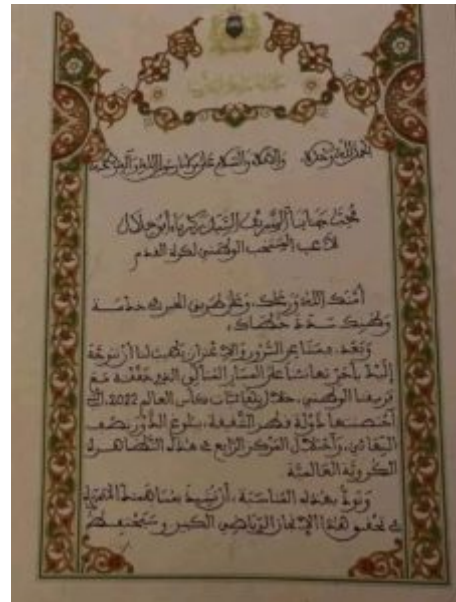 الحمد لله وحده، والصلاة والسلام على مولانا رسول الله وآله وصحبه
محب جنابنا الشريف السيد زكرياء أبو خلال
لاعب المنتخب الوطني لكرة القدم
أمنك الله ورعاك، وعلى طريق الخير في خدمة
وطنك سدد خطاك،
وبعد، فمما يبعث السرور والاعتزاز يطيب لنا أن نتوجه
إليك بأحر تهانئنا على المسار المتألق الذي حققته مع
فريقنا الوطني، خلال نهائيات كأس العالم 2022، التي
احتضنتها دولة قطر الشقيقة، ببلوغ الدور نصف
النهائي، واحتلال المركز الرابع في هذه التظاهرة
الكروية العالمية.
ونود بهذه المناسبة، أن نشيد بمساهمتك المتميزة
في تحقيق هذا الإنجاز الرياضي الكبير